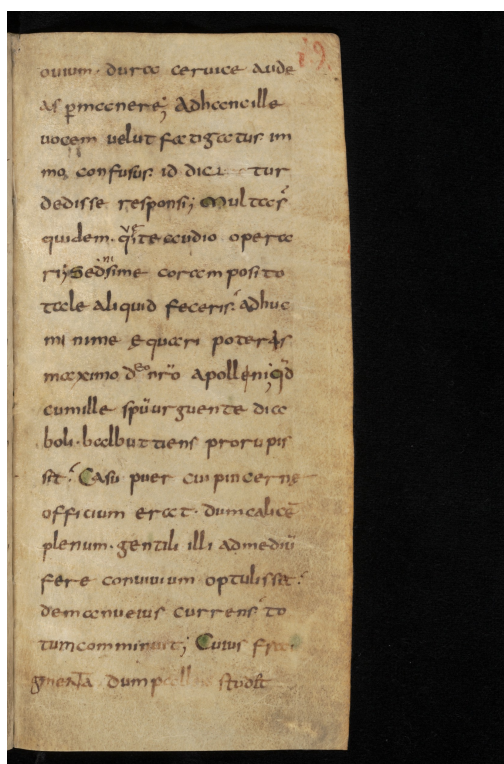 19
ouium. dura ceruice aude
as p̱manere; Adhanc ille
uocem uelut fatigatus im
mo, confusus. id dici tur
dedisse responsi; Multas
quidem. te audio opera
ri; Sed si me coram posito
tale aliquid feceris. adhuc
mi nime equari poteris
maximo dō nr̄o apolleni; qđ
cum ille sp̄u urguente dia
boli. balbuttiens prorupis
set. Casu puer cui pincerne
officium erat. dum calicē
plenum. gentili illi ad mediū
fere conuiuium optulisset.
de manu eius currens to
tum comminuit; Cuius fra
gmenta dum studet